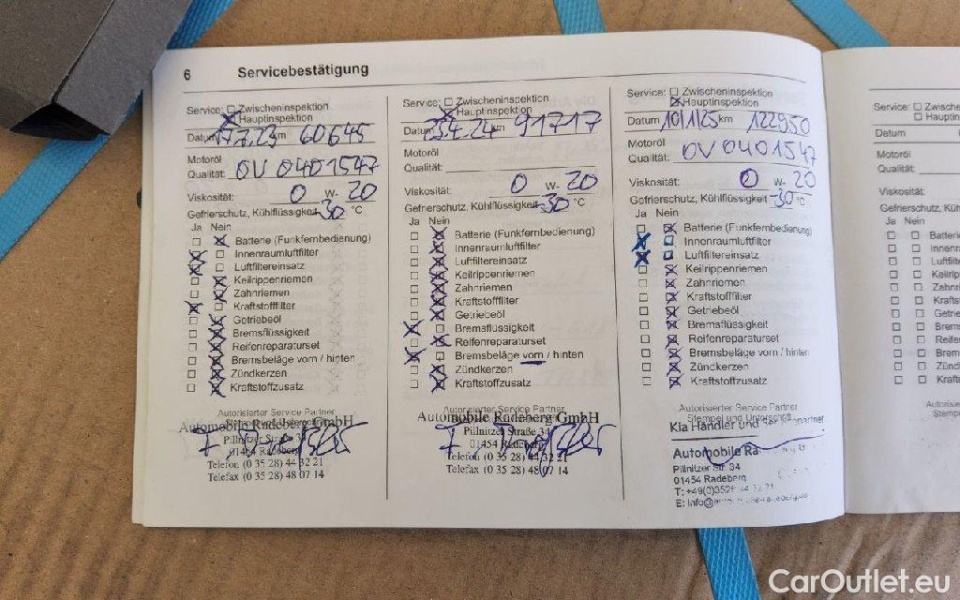 6 Servicebestätigung
Service: Zwischeninspektion
Hauptinspektion
Datum 17.7.23 km 60645
Motoröl
Qualität: OV 0401547
Viskosität: 0 W- 20
Gefrierschutz, Kühlflüssigkeit -30 °C
Ja Nein
Batterie (Funkfernbedienung)
Innenraumluftfilter
Luftfiltereinsatz
Keilrippenriemen
Zahnriemen
Kraftstofffilter
Getriebeöl
Bremsflüssigkeit
Reifenreparaturset
Bremsbeläge vorn / hinten
Zündkerzen
Kraftstoffzusatz
Autorisierter Service Partner
Automobile Radeberg GmbH
Pillnitzer Straße 34
01454 Radeberg
Telefon (0 35 28) 44 32 21
Telefax (0 35 28) 48 07 14
Service: Zwischeninspektion
Hauptinspektion
Datum 23.4.24 km 91717
Motoröl
Qualität:
Viskosität: 0 W- 20
Gefrierschutz, Kühlflüssigkeit -30 °C
Ja Nein
Batterie (Funkfernbedienung)
Innenraumluftfilter
Luftfiltereinsatz
Keilrippenriemen
Zahnriemen
Kraftstofffilter
Getriebeöl
Bremsflüssigkeit
Reifenreparaturset
Bremsbeläge vorn / hinten
Zündkerzen
Kraftstoffzusatz
Autorisierter Service Partner
Automobile Radeberg GmbH
Pillnitzer Straße 34
01454 Radeberg
Telefon (0 35 28) 44 32 21
Telefax (0 35 28) 48 07 14
Service: Zwischeninspektion
Hauptinspektion
Datum 10/1/25 km 122950
Motoröl
Qualität: OV 0401547
Viskosität: 0 W- 20
Gefrierschutz, Kühlflüssigkeit -30 °C
Ja Nein
Batterie (Funkfernbedienung)
Innenraumluftfilter
Luftfiltereinsatz
Keilrippenriemen
Zahnriemen
Kraftstofffilter
Getriebeöl
Bremsflüssigkeit
Reifenreparaturset
Bremsbeläge vorn / hinten
Zündkerzen
Kraftstoffzusatz
Autorisierter Service Partner
Stempel und Unterschrift
Kia Händler und
Automobile Ra
Pillnitzer Str. 34
01454 Radeberg
Service: Zwische
Hauptin
Datum
Motoröl
Qualität:
Viskosität:
Gefrierschutz, Kühlflü
Ja Nein
Batterie
Innenra
Luftfilte
Keilripp
Zahnrie
Kraftsto
Getrieb
Bremsfl
Reifenr
Bremsb
Zündke
Kraftst
Autorisie
Stempe
CarOutlet.eu